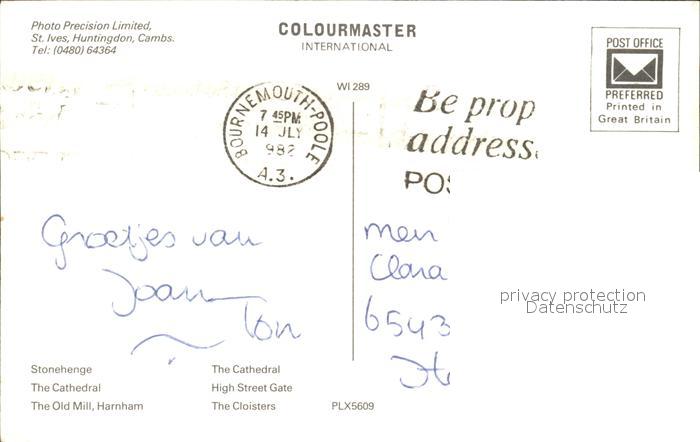 Photo Precision Limited,
St. Ives, Huntingdon, Cambs.
Tel: (0480) 64364
COLOURMASTER
INTERNATIONAL
POST OFFICE
PREFERRED
Printed in
Great Britain
WI 289
BOURNEMOUTH-POOLE
7 45PM
14 JLY
982
A.3.
Be prop
address
POS
Groetjes van
Joan
Ton
men
Clara
6543
privacy protection
Datenschutz
Stonehenge
The Cathedral
The Old Mill, Harnham
The Cathedral
High Street Gate
The Cloisters
PLX5609